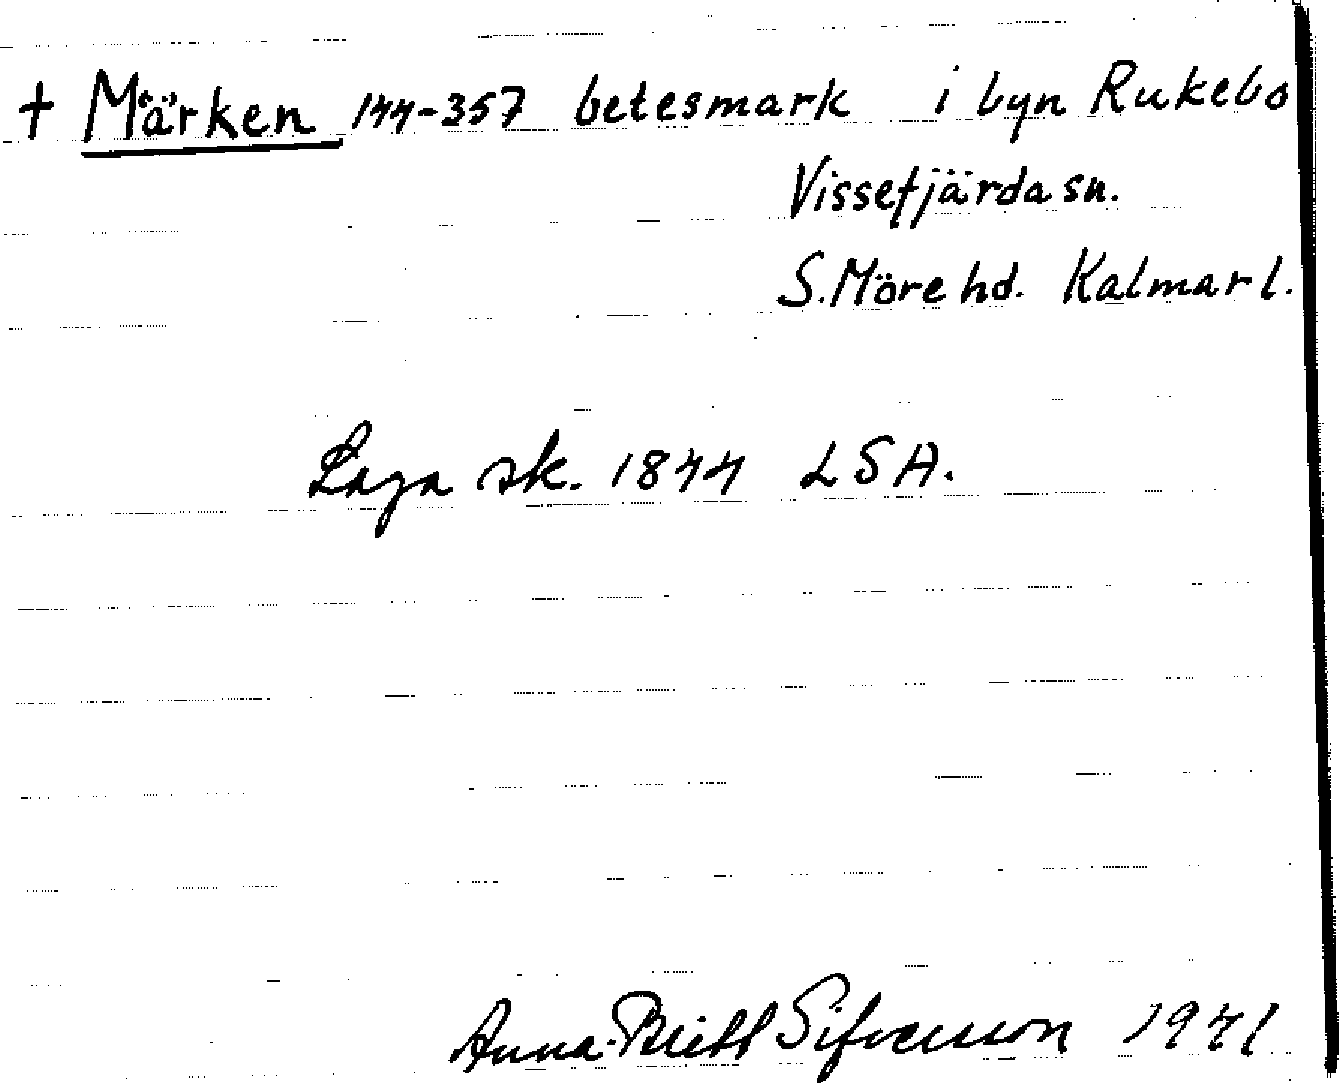 † Märken 144-357 betesmark i byn Rukebo
Vissefjärda sn.
S. Möre hd. Kalmar l.
Laga sk. 1844 LSA.
Anna-Britt Sifversson 1941